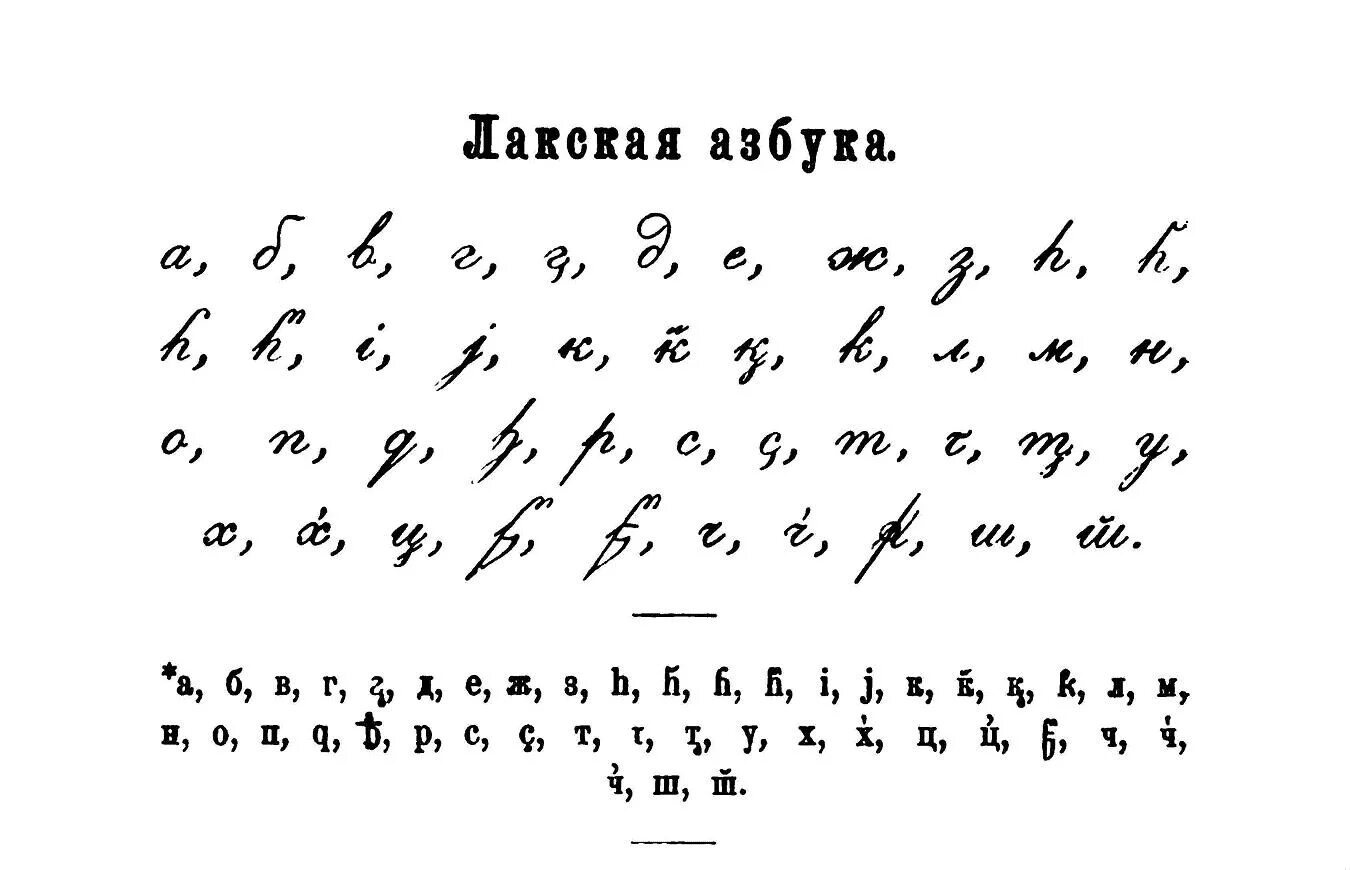 Лакская азбука.
а, б, в, г, г̧, д, е, ж, з, һ, һ̆,
ɦ, ɦ̆, і, ј, к, к̆, қ, k, л, м, н,
о, п, q, ꜧ, р, с, ҫ, т, ꚍ, т̨, у,
х, х̓, ц, ч, ч̓, ш, ш̆.
*а, б, в, г, г̧, д, е, ж, з, һ, һ̆, ɦ, ɦ̆, і, ј, к, к̆, қ, k, л, м,
н, о, п, q, ђ, р, с, ҫ, т, τ, т̨, у, х, х̓, ц, ц̓, ч, ч̓,
ч̓, ш, ш̆.